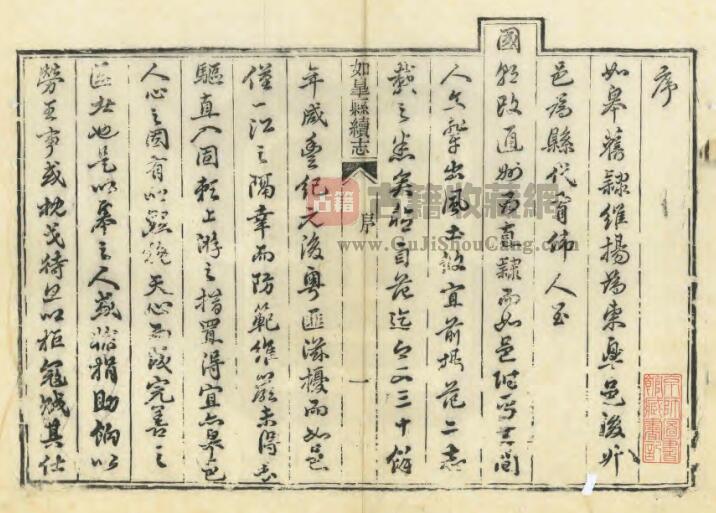 序
如皋舊隸維揚為東興邑後升
邑為縣代有偉人至
國朝改通州為直隸而如邑附焉其間
人文蔚出風土攸宜前楊范二志
載之悉矣治自范迄今又三十餘
年咸豐紀元後粵匪滋擾而如邑
僅一江之隔幸而防範維嚴未得志
驅直入固賴上游之措置得宜亦皋邑
人心之固有以默挽天心而成完善之
區也是以奉之人或輸捐助餉以
勞王事或枕戈待旦以拒寇賊其仕
如皋縣續志
序
一
古籍
古籍收藏網
www.GuJiShouCang.com
京師圖書館藏書記